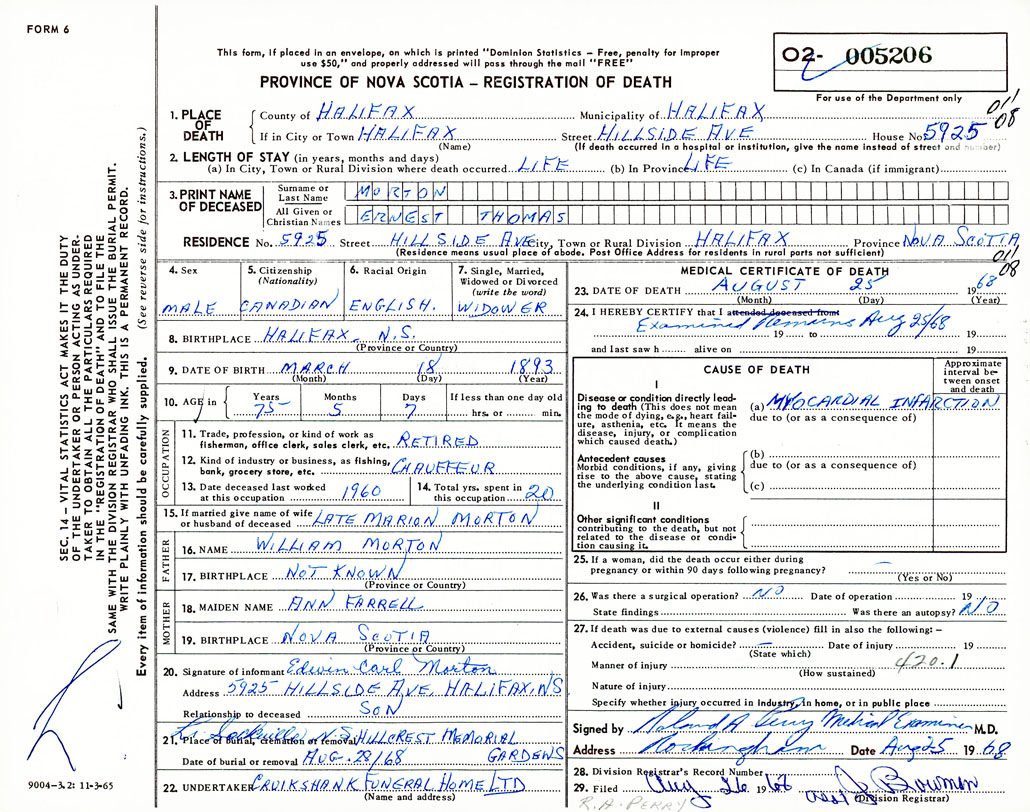 FORM 6
This form, if placed in an envelope, on which is printed "Dominion Statistics – Free, penalty for improper
use $50," and properly addressed will pass through the mail "FREE"
PROVINCE OF NOVA SCOTIA – REGISTRATION OF DEATH
02- 005206
For use of the Department only
011
08
1. PLACE OF DEATH
County of HALIFAX Municipality of HALIFAX
If in City or Town HALIFAX Street HILLSIDE AVE House No. 5925
(Name) (If death occurred in a hospital or institution, give the name instead of street and number)
2. LENGTH OF STAY (in years, months and days)
(a) In City, Town or Rural Division where death occurred LIFE (b) In Province LIFE (c) In Canada (if immigrant)
3. PRINT NAME OF DECEASED
Surname or Last Name MORTON
All Given or Christian Names ERNEST THOMAS
RESIDENCE No. 5925 Street HILLSIDE AVE City, Town or Rural Division HALIFAX Province NOVA SCOTIA
(Residence means usual place of abode. Post Office Address for residents in rural parts not sufficient)
011
08
4. Sex
MALE
5. Citizenship (Nationality)
CANADIAN
6. Racial Origin
ENGLISH.
7. Single, Married, Widowed or Divorced (write the word)
WIDOWER
8. BIRTHPLACE HALIFAX N.S.
(Province or Country)
9. DATE OF BIRTH MARCH 18 1893
(Month) (Day) (Year)
10. AGE in Years 75 Months 5 Days 7 If less than one day old
hrs. or min.
OCCUPATION
11. Trade, profession, or kind of work as
fisherman, office clerk, sales clerk, etc. RETIRED
12. Kind of industry or business, as fishing,
bank, grocery store, etc. CHAUFFEUR
13. Date deceased last worked at this occupation 1960
14. Total yrs. spent in this occupation 20
15. If married give name of wife
or husband of deceased LATE MARION MORTON
FATHER
16. NAME WILLIAM MORTON
17. BIRTHPLACE NOT KNOWN
(Province or Country)
MOTHER
18. MAIDEN NAME ANN FARRELL
19. BIRTHPLACE NOVA SCOTIA
(Province or Country)
20. Signature of informant Edwin Carl Morton
Address 5925 HILLSIDE AVE, HALIFAX, NS
Relationship to deceased SON
Lr. Sackville N.S.
21. Place of burial, cremation or removal HILLCREST MEMORIAL
Date of burial or removal AUG. 28/68 GARDENS
22. UNDERTAKER CRUIKSHANK FUNERAL HOME LTD
(Name and address)
MEDICAL CERTIFICATE OF DEATH
23. DATE OF DEATH AUGUST 25 1968
(Month) (Day) (Year)
24. I HEREBY CERTIFY that I attended deceased from
Examined Remains Aug 25/68
19 to 19
and last saw h alive on 19
CAUSE OF DEATH
Approximate interval between onset and death
I
Disease or condition directly leading to death (This does not
the mode of dying, e.g., heart failure, asthenia, etc. It means the
disease, injury, or complication
which caused death.)
(a) MYOCARDIAL INFARCTION
due to (or as a consequence of)
Antecedent causes
Morbid conditions, if any, giving
rise to the above cause, stating
the underlying condition last.
(b)
due to (or as a consequence of)
(c)
II
Other significant conditions
contributing to the death, but not
related to the disease or condition causing it.
25. If a woman, did the death occur either during
pregnancy or within 90 days following pregnancy? –
(Yes or No)
26. Was there a surgical operation? NO Date of operation 19
State findings Was there an autopsy? NO
27. If death was due to external causes (violence) fill in also the following: –
Accident, suicide or homicide? – Date of injury 19
(State which)
Manner of injury 420.1
(How sustained)
Nature of injury
Specify whether injury occurred in Industry, in home, or in public place
Signed by Roland A Perry Medical Examiner M.D.
Address Rockingham Date Aug 25 1968
28. Division Registrar's Record Number
29. Filed Aug 26 1968 Bowman
(Division Registrar)
R.A. PERRY
SEC. 14 – VITAL STATISTICS ACT MAKES IT THE DUTY
OF THE UNDERTAKER OR PERSON ACTING AS UNDERTAKER TO OBTAIN ALL THE PARTICULARS REQUIRED
IN THE "REGISTRATION OF DEATH" AND TO FILE THE
SAME WITH THE DIVISION REGISTRAR WHO SHALL ISSUE BURIAL PERMIT.
WRITE PLAINLY WITH UNFADING INK. THIS IS PERMANENT RECORD.
Every item of information should be carefully supplied. (See reverse side for instructions.)
9004-3.2: 11-3-65